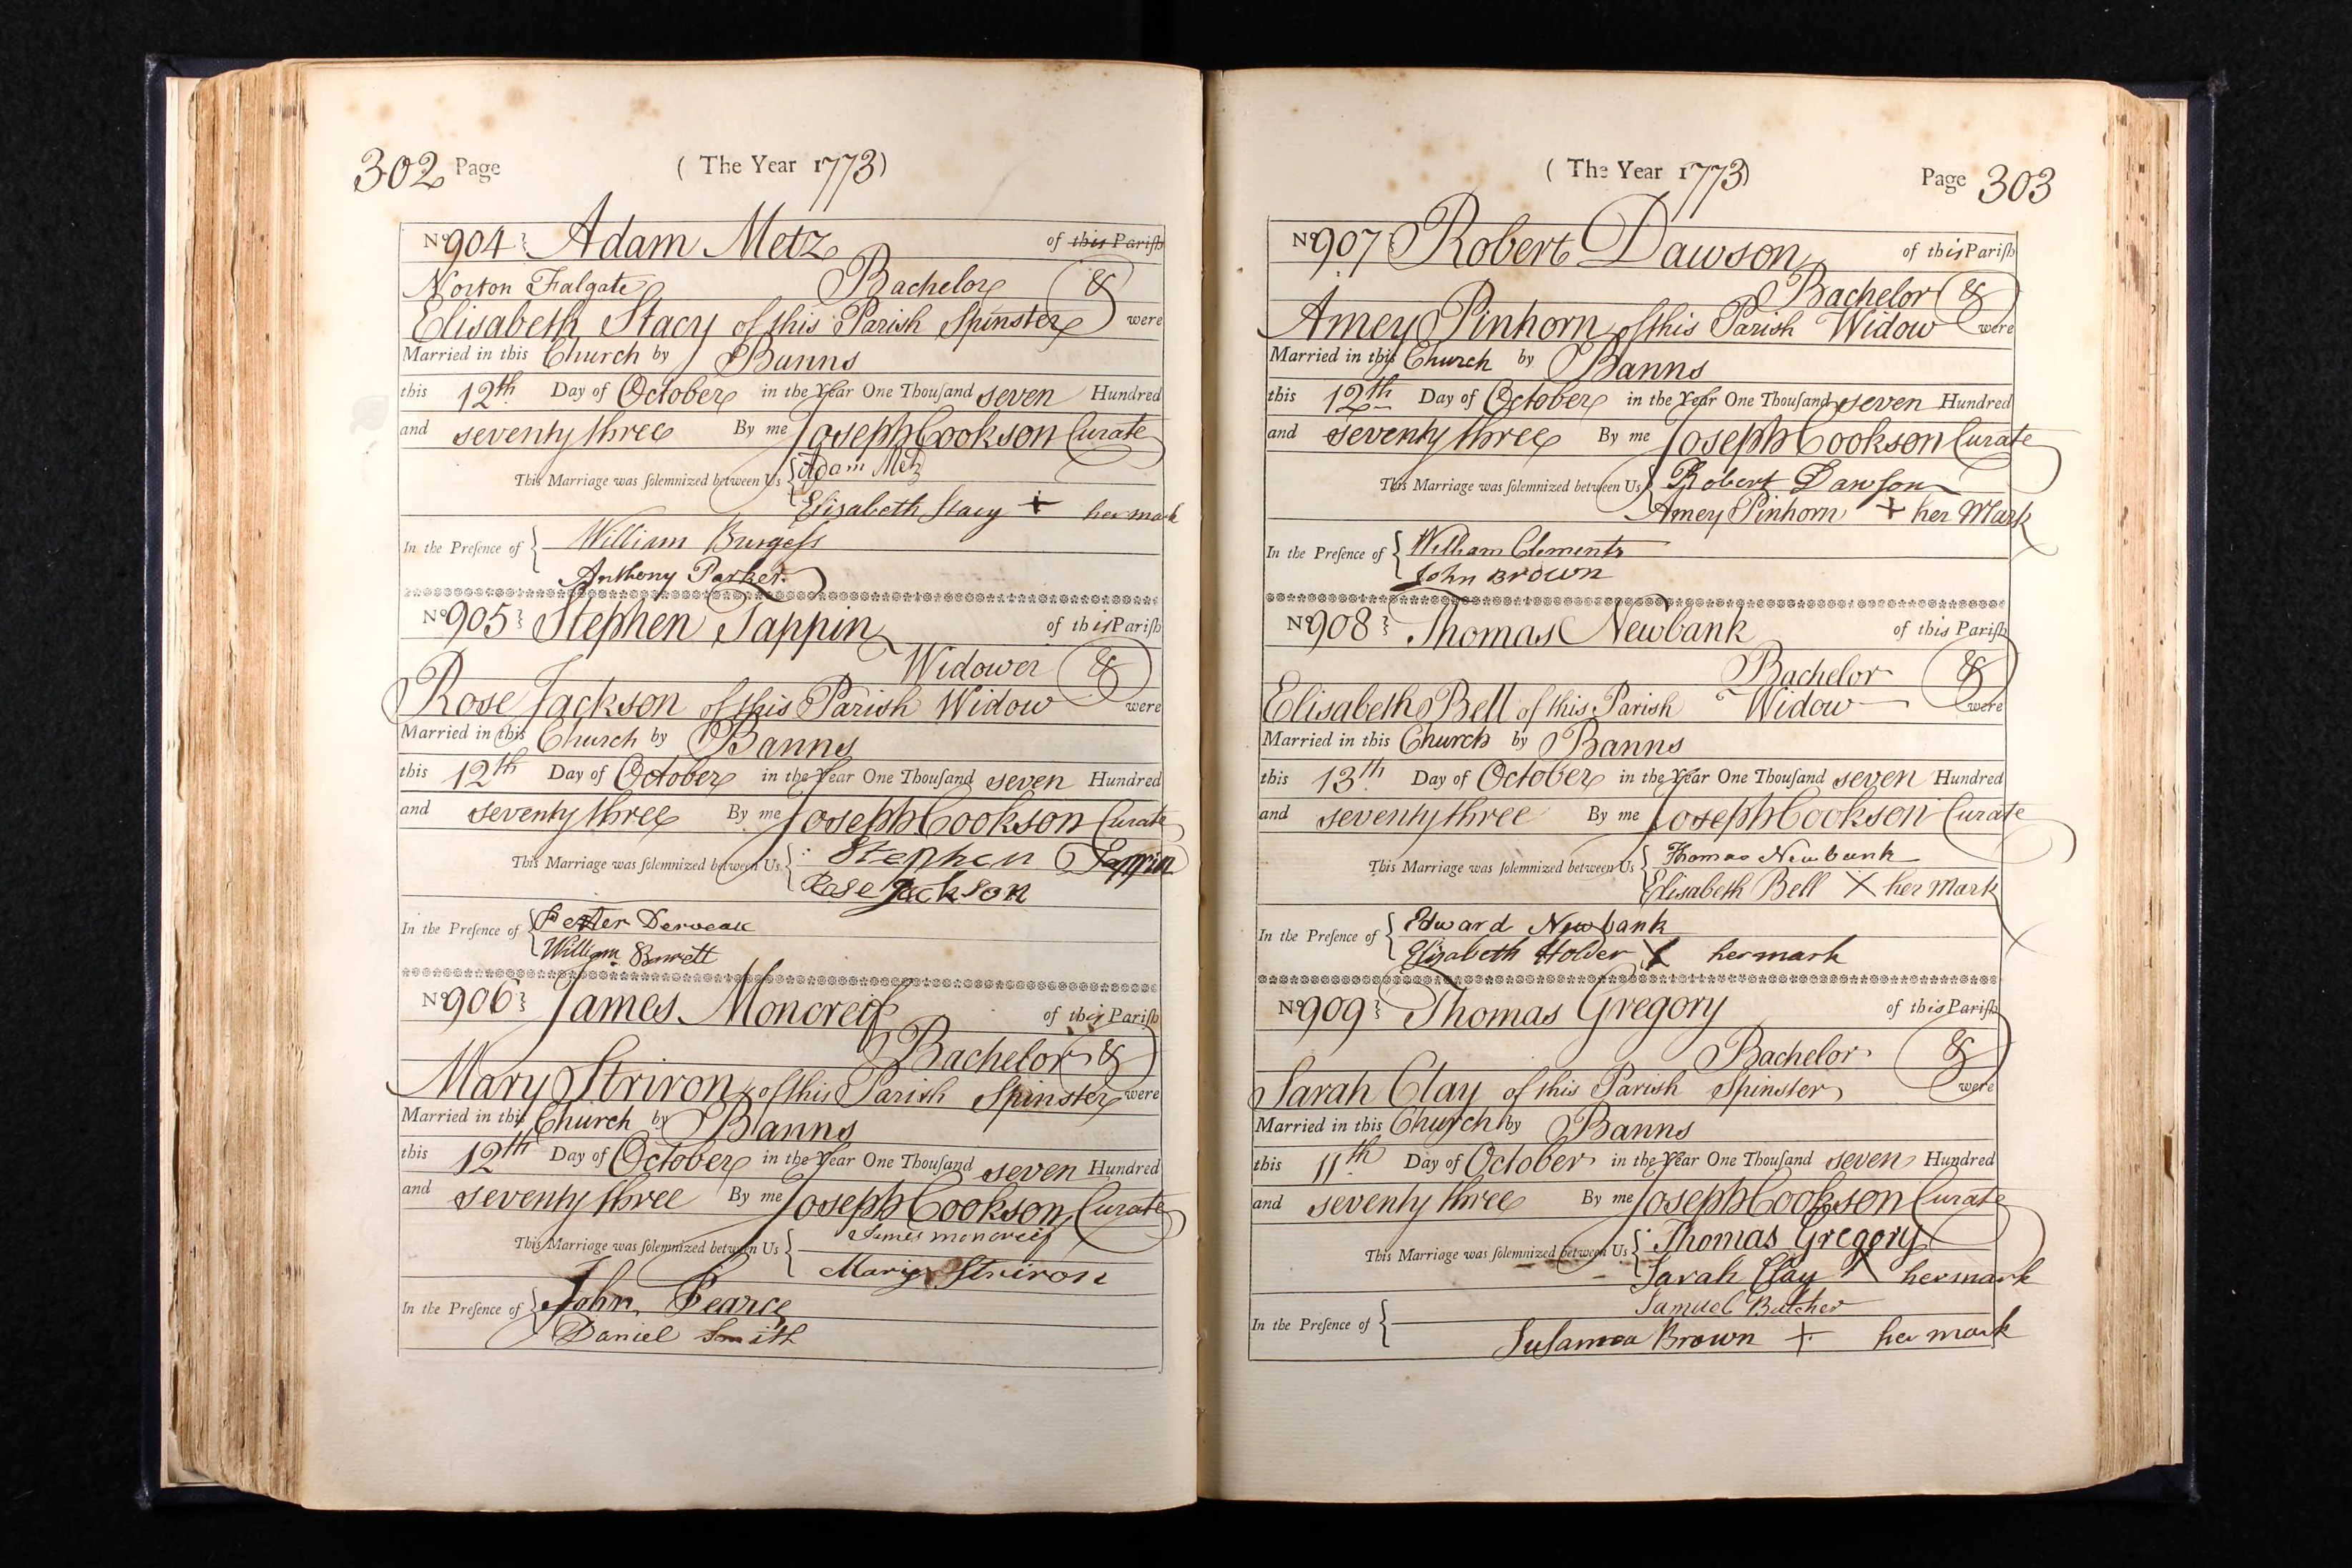 302 Page
( The Year 1773)
No 904 Adam Metz of this Parish
Norton Falgate Bachelor &
Elisabeth Stacy of this Parish Spinster were
Married in this Church by Banns
this 12th Day of October in the Year One Thousand seven Hundred
and seventy three By me Joseph Cookson Curate
This Marriage was solemnized between Us Adam Metz
Elisabeth Stacy + her mark
In the Presence of William Burgess
Anthony Parker
No 905 Stephen Tappin of this Parish
Widower &
Rose Jackson of this Parish Widow were
Married in this Church by Banns
this 12th Day of October in the Year One Thousand seven Hundred
and seventy three By me Joseph Cookson Curate
This Marriage was solemnized between Us Stephen Tappin
Rose Jackson
In the Presence of Peter
William
No 906 James Moncreif of this Parish
Bachelor &
Mary Striron of this Parish Spinster were
Married in this Church by Banns
this 12th Day of October in the Year One Thousand seven Hundred
and seventy three By me Joseph Cookson Curate
This Marriage was solemnized between Us James moncreif
Mary Striron
In the Presence of John Pearce
Daniel Smith
( The Year 1773)
Page 303
No 907 Robert Dawson of this Parish
Bachelor &
Amey Pinhorn of this Parish Widow were
Married in this Church by Banns
this 12th Day of October in the Year One Thousand seven Hundred
and seventy three By me Joseph Cookson Curate
This Marriage was solemnized between Us Robert Dawson
Amey Pinhorn + her Mark
In the Presence of William Clements
John Brown
No 908 Thomas Newbank of this Parish
Bachelor &
Elisabeth Bell of this Parish Widow were
Married in this Church by Banns
this 13th Day of October in the Year One Thousand seven Hundred
and seventy three By me Joseph Cookson Curate
This Marriage was solemnized between Us Thomas Newbank
Elisabeth Bell X her Mark
In the Presence of Edward Newbank
Elizabeth Holder X her mark
No 909 Thomas Gregory of this Parish
Bachelor &
Sarah Clay of this Parish Spinster were
Married in this Church by Banns
this 11th Day of October in the Year One Thousand seven Hundred
and seventy three By me Joseph Cookson Curate
This Marriage was solemnized between Us Thomas Gregory
Sarah Clay X her mark
Samuel Butcher
In the Presence of
Susanna Brown + her mark